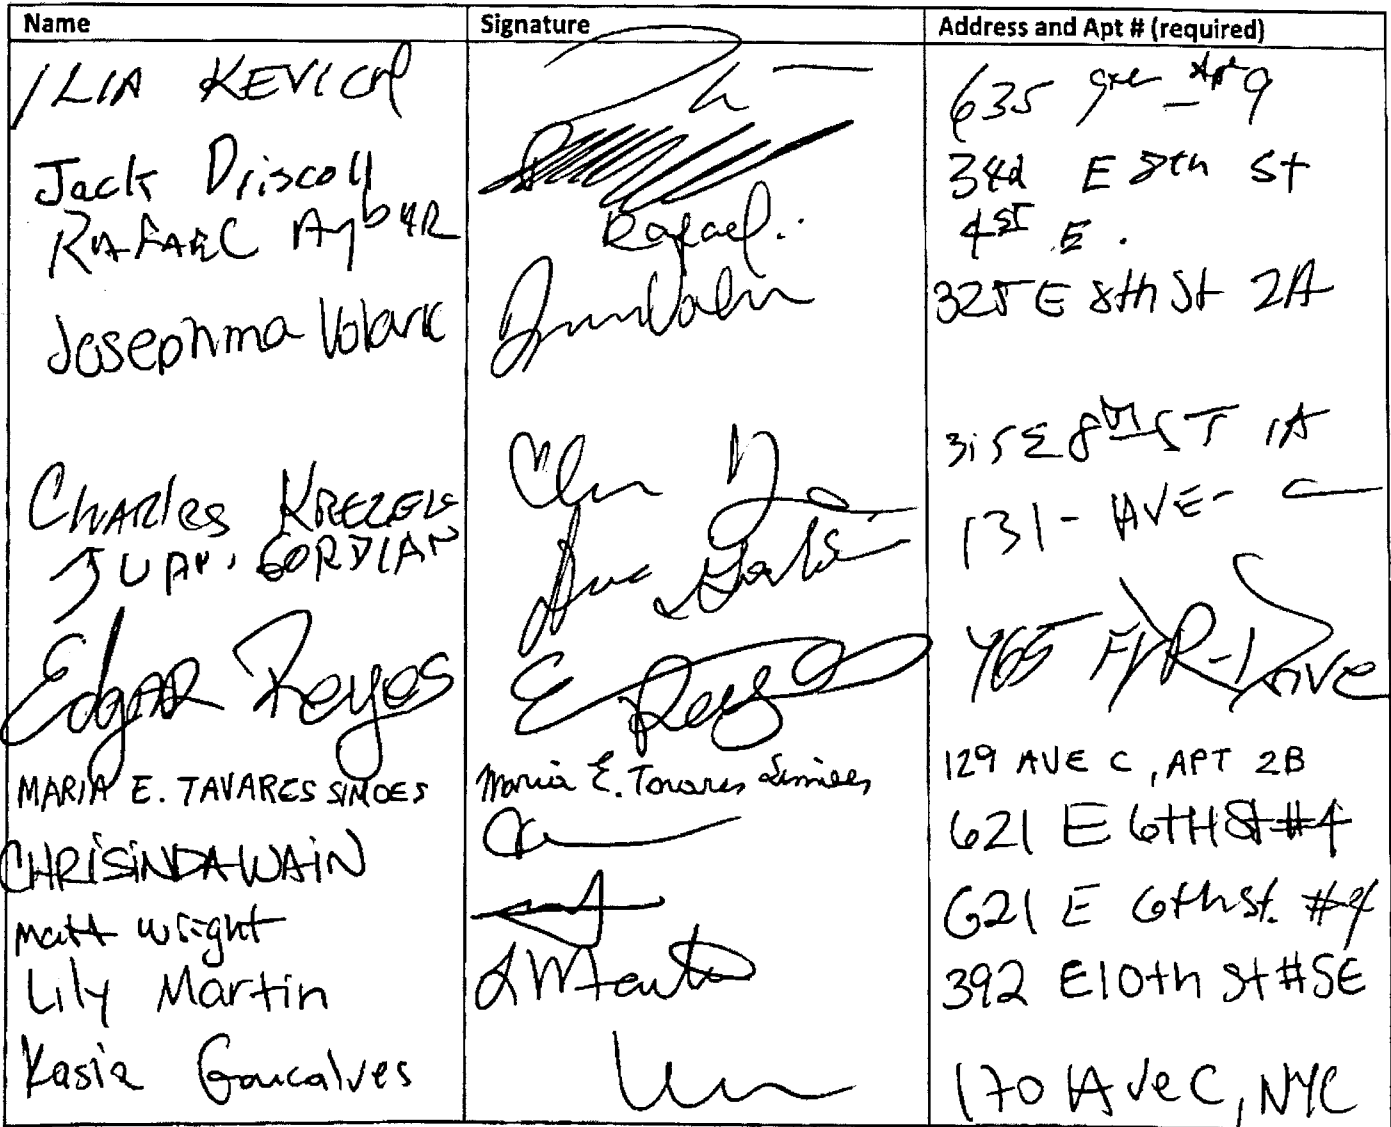 Name Signature Address and Apt # (required)
ILIA 635
Jack Driscoll E 8th St
RAFAEL Aybar Rafael. 4ST E.
Josephina 325 E 8th St 2A
Charles 315 E 8th ST 1A
JUAN. GORDIAN 131 - AVE - C
Edgar Reyes E Reyes 765 FDR-Drive
MARIA E. TAVARES SIMOES Maria E. Tavares Simoes 129 AVE C, APT 2B
CHRISINDAWAIN 621 E 6TH St #4
Matt Wright 621 E 6th St. #4
Lily Martin 392 E 10th St #5E
Kasia Goncalves 170 AveC, NYC